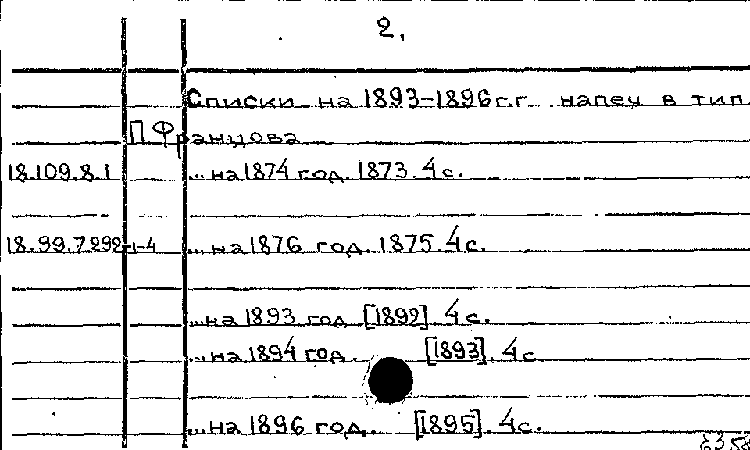 2.
Списки на 1893-1896 г.г. напеч в тип.
П Францова
18.109.8.1 ...на 1874 год. 1873. 4с.
18.99.7.292-1-4 ...на 1876 год. 1875. 4с.
...на 1893 год [1892]. 4с.
...на 1894 год. [1893]. 4с
...на 1896 год. [1895]. 4с.